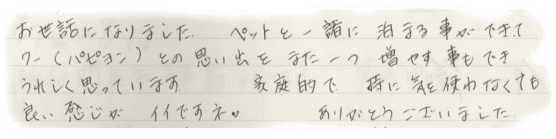 お世話になりました。 ペットと一諸に 泊まる事ができて
クー(パピヨン)との思い出を また一つ 増やす事もでき
うれしく思っています。 家庭的で 特に気を使わなくても
良い感じが イイですネ♥ ありがとうございました。